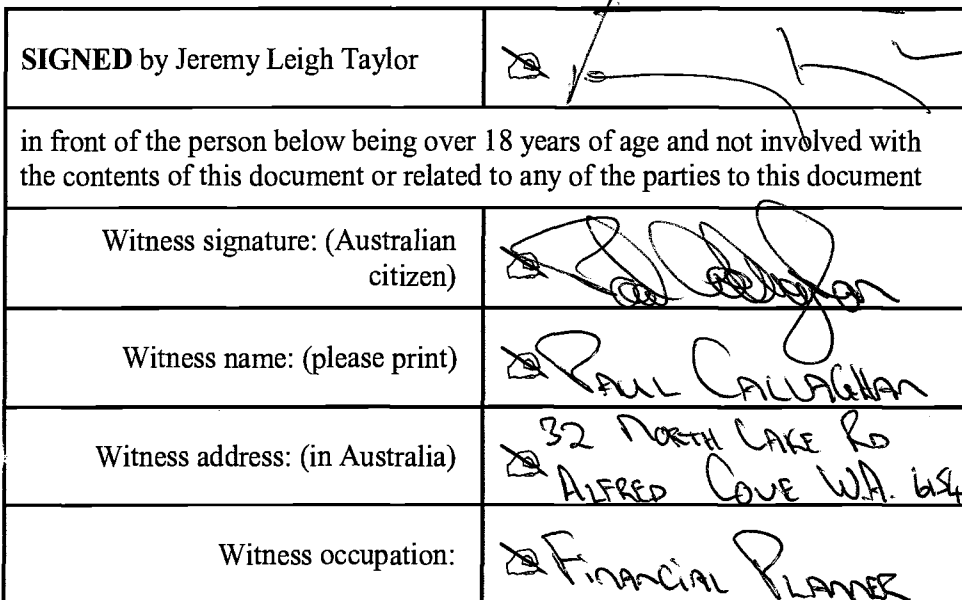 SIGNED by Jeremy Leigh Taylor
in front of the person below being over 18 years of age and not involved with
the contents of this document or related to any of the parties to this document
Witness signature: (Australian
citizen)
Paul Callaghan
Witness name: (please print)
PAUL CALLAGHAN
Witness address: (in Australia)
32 NORTH LAKE RD
ALFRED COVE W.A. 6154
Witness occupation:
FINANCIAL PLANNER